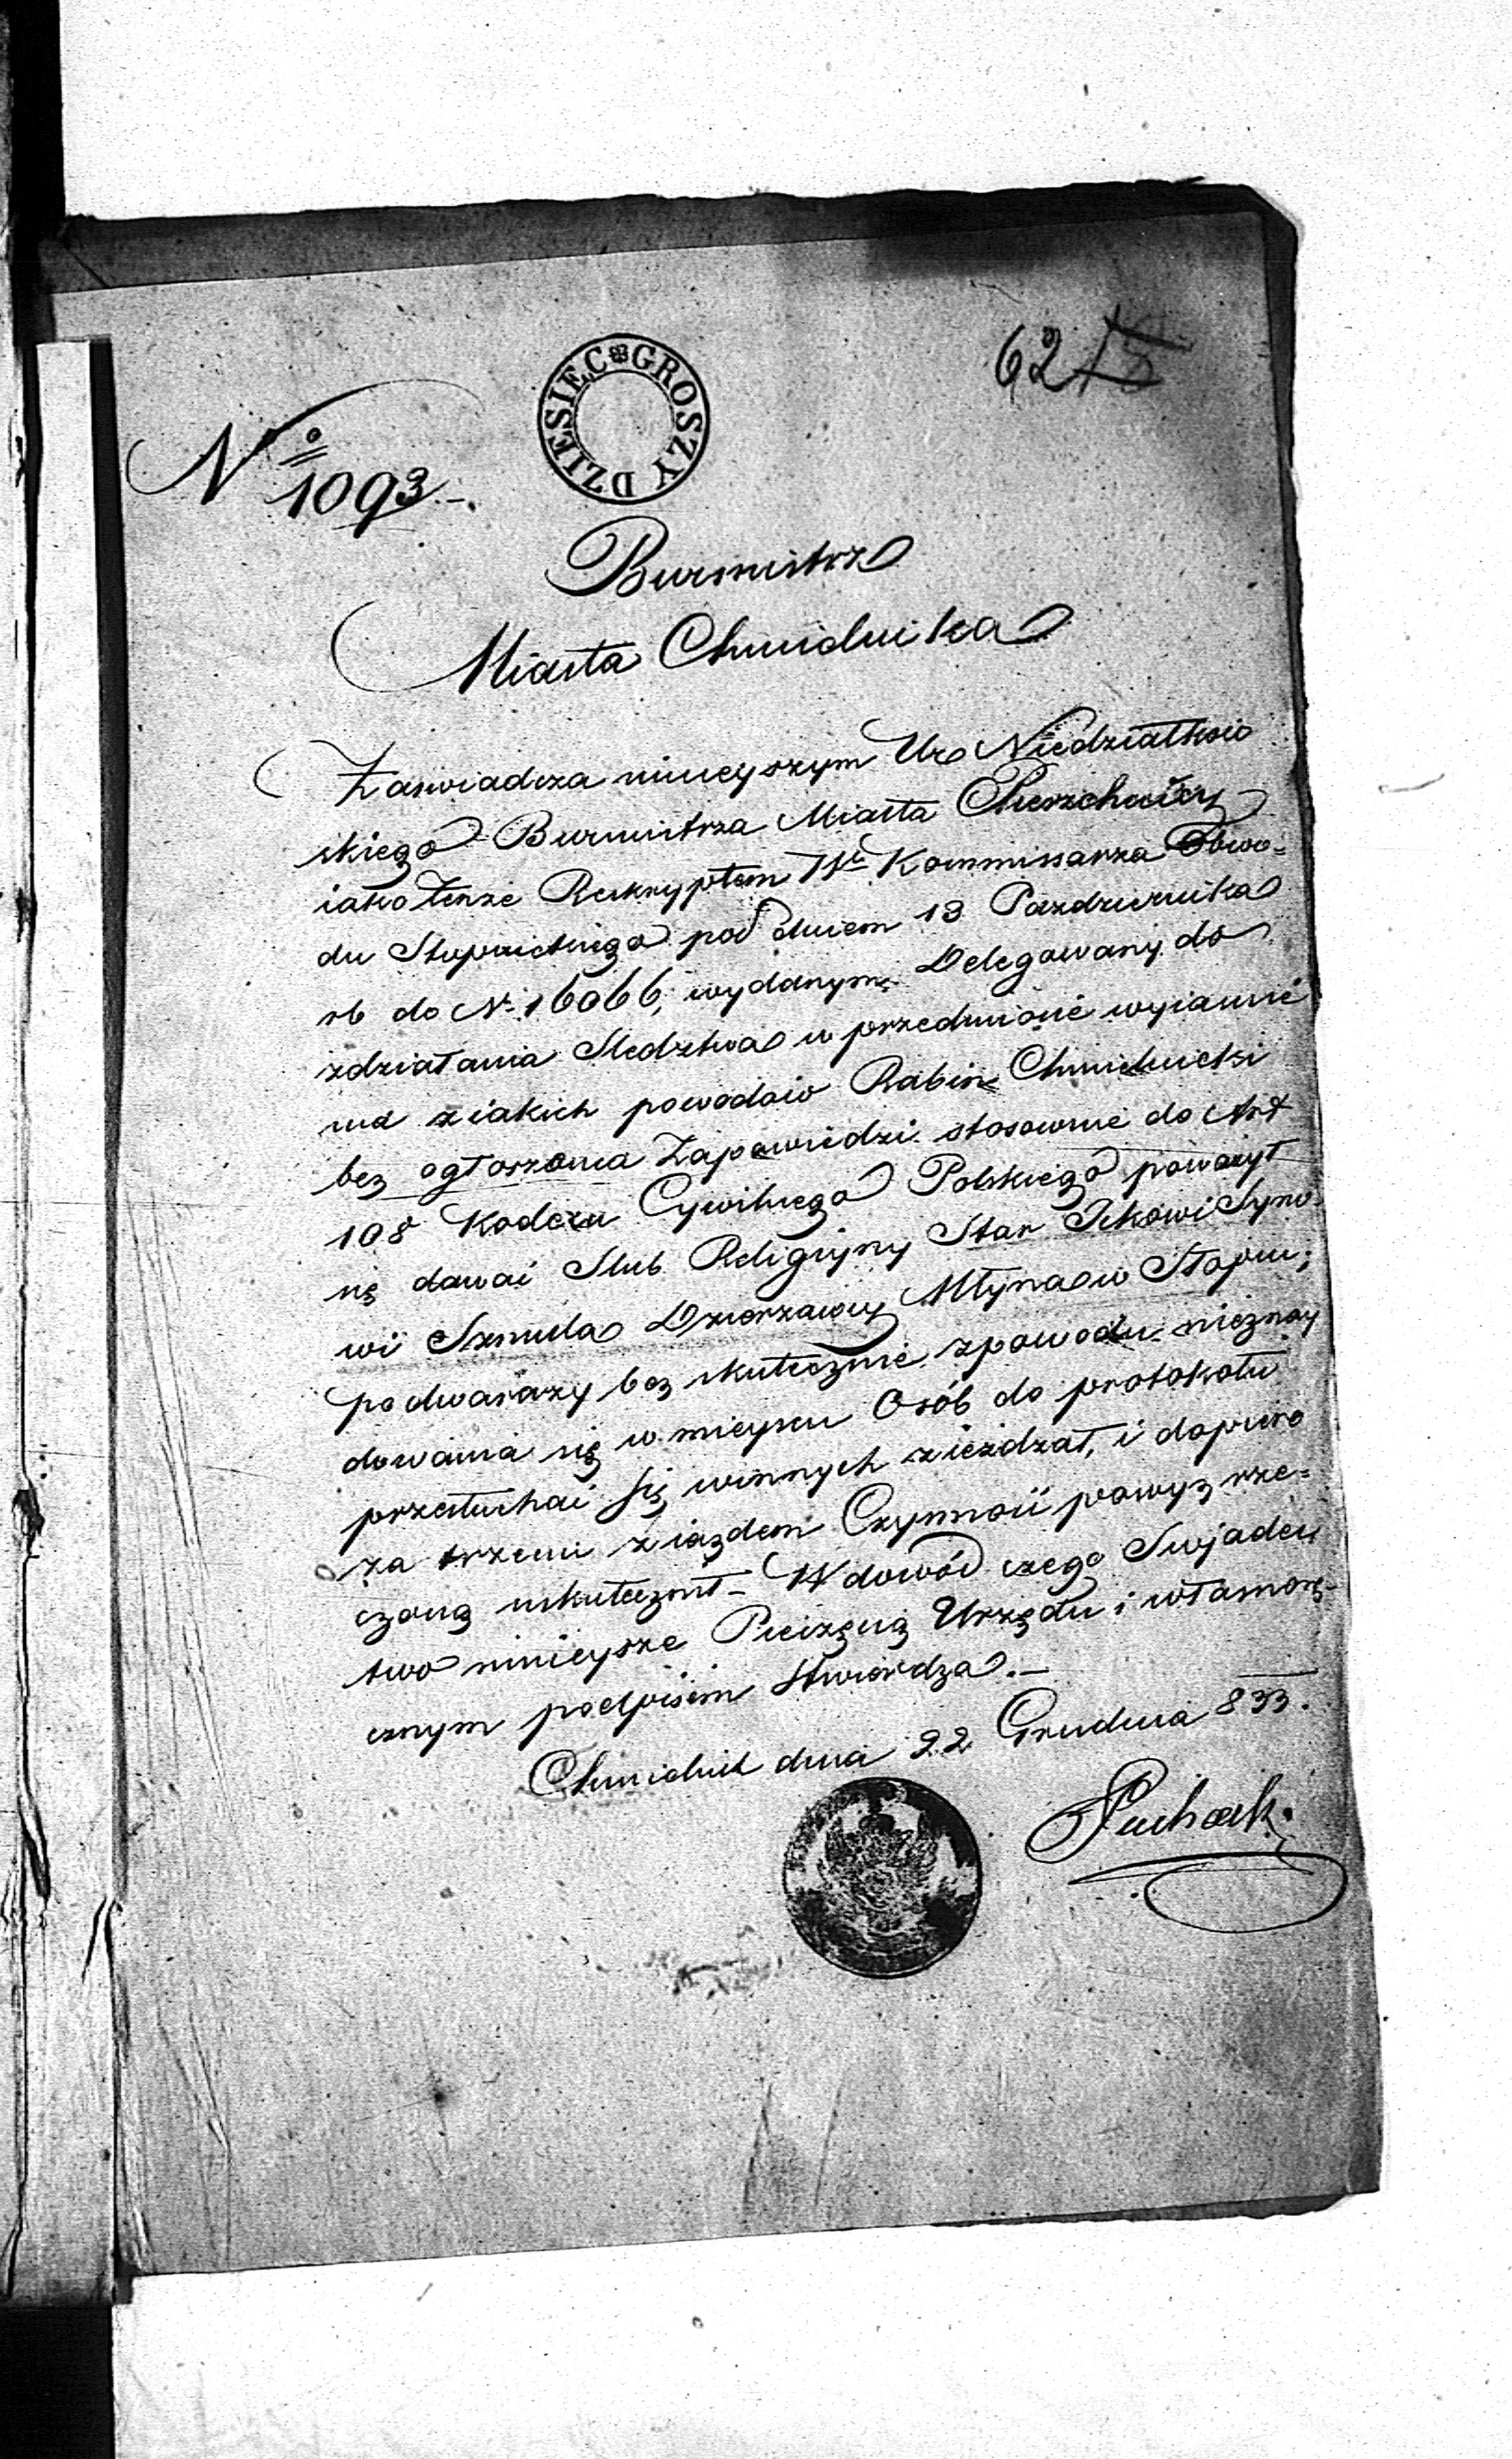 62
DZIESIĘC GROSZY
No 1093.
Burmistrz
Miasta Chmielnika
Zaswiadcza ninieyszym Ur Niedziałkow
skiego Burmistrza Miasta Pierzchnicy
iako tenże Reskryptem Wo Kommissarza Obwo=
du Stopnickiego pod dniem 13 Pazdziernika
rb do No 16066, wydanym Delegowany do
zdziałania Sledztwa w przedmiocie wyiasnie
nia z iakich powodow Rabin Chmielnicki
bez ogłoszenia Zapowiedzi stosownie do Art
108 Kodexu Cywilnego Polskiego poważył
się dawać Slub Religijny Star Ickowi Syno
wi Szmula Dzierzawcy Młyna w
po dwa razy bez skutecznie z powodu nieznay
dowania się w mieyscu Osób do protokołu
przesłuchać się winnych ziezdzał, i dopiero
za trzecim ziazdem Czynność powyz rze=
czoną uskutecznił – W dowód czego Swjadec
two ninieysze Pieczęcią Urzędu i własnorę-
cznym podpisem stwierdza. –
Chmielnik dnia 22 Grudnia 833.